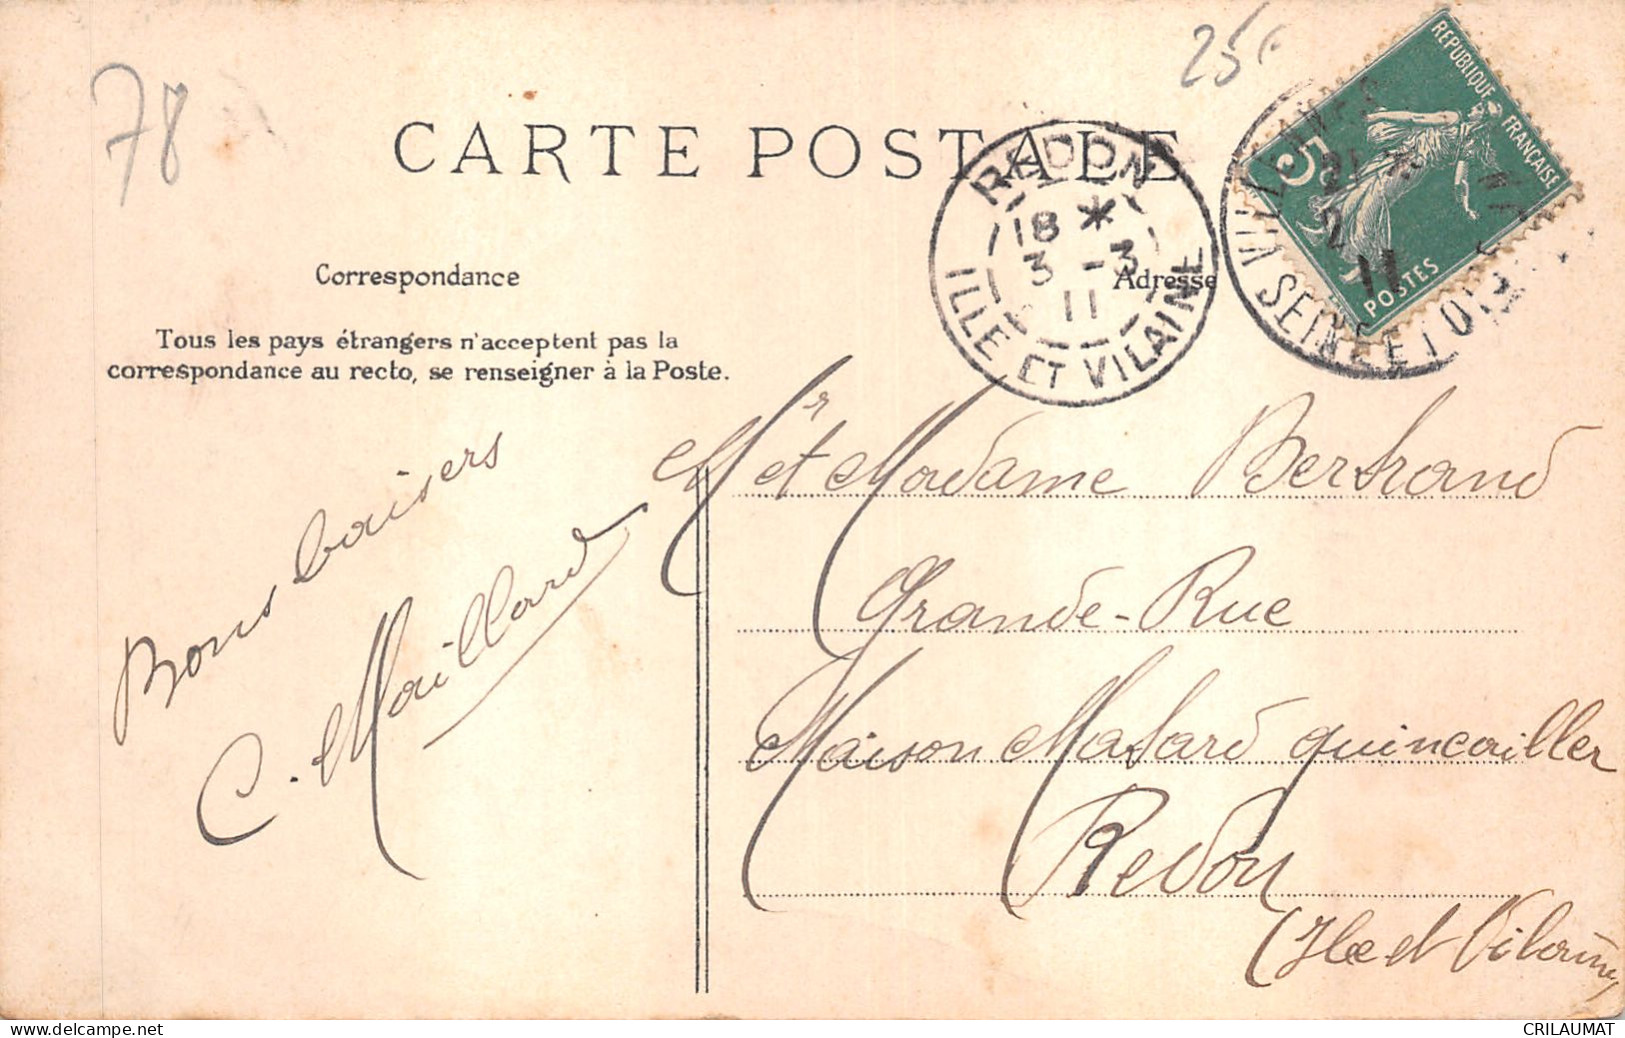 78
25
CARTE POSTALE
REPUBLIQUE FRANÇAISE
5c
POSTES
REDON
18 *
3 -3
11
ILLE ET VILAINE
2
11
SEINE ET OISE
Correspondance
Adresse
Tous les pays étrangers n'acceptent pas la
correspondance au recto, se renseigner à la Poste.
Bons baisers
C. Maillard
Mr et Madame Bertrand
Grande-Rue
Maison Matard quincailler
Redon
(Ille et Vilaine)
CRILAUMAT